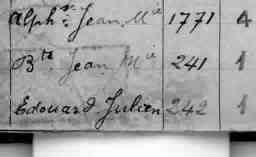 Alph.se Jean, M.ie 1771 4
B.te, Jean M.ie 241 1
Edouard Julien 242 1